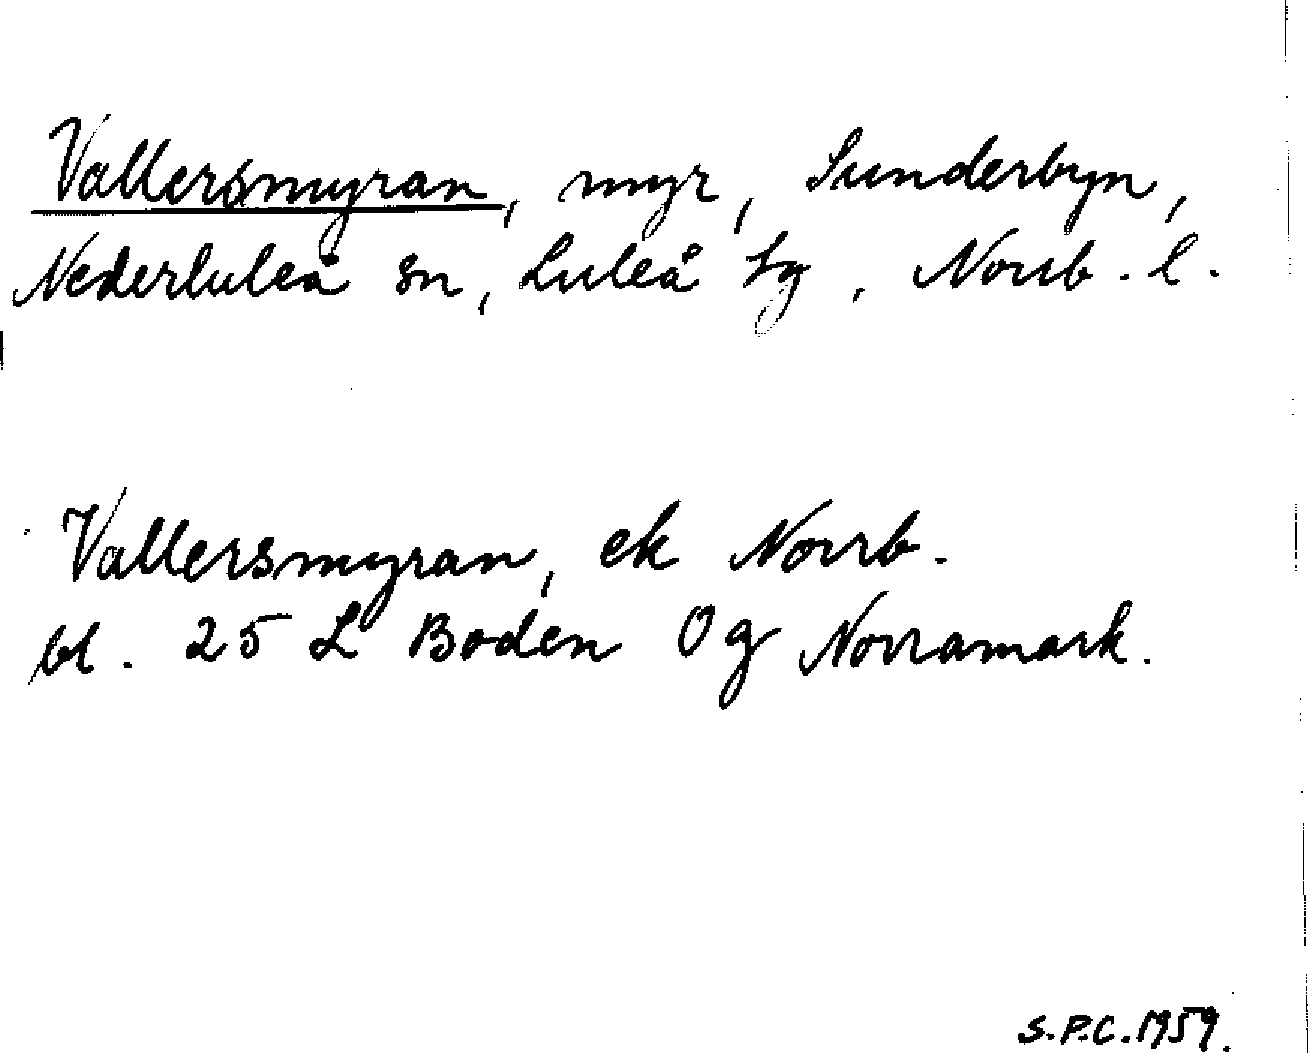 Vallersmyran, myr, Sunderbyn,
Nederluleå sn, Luleå tg, Norrb. l.
Vallersmyran, ek Norrb.
bl. 25 L Boden Og Norramark.
S.P.C. 1959.